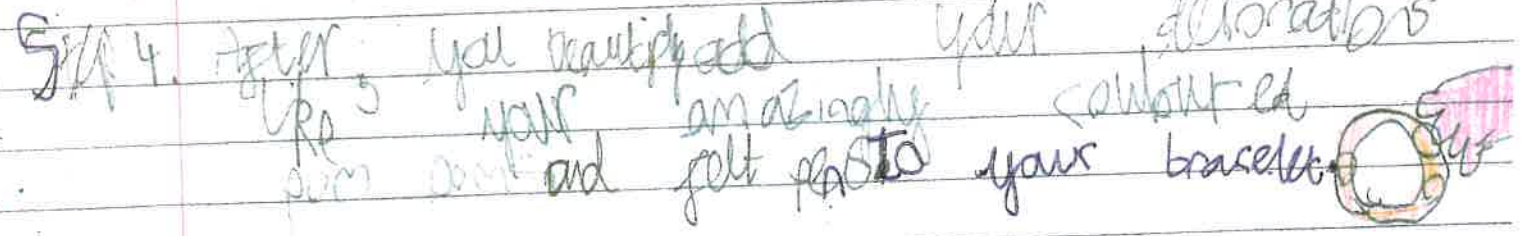 Step 4. After, you beautify add your decorations
like your amazingly coloured
pom pom and felt pens to your bracelet.